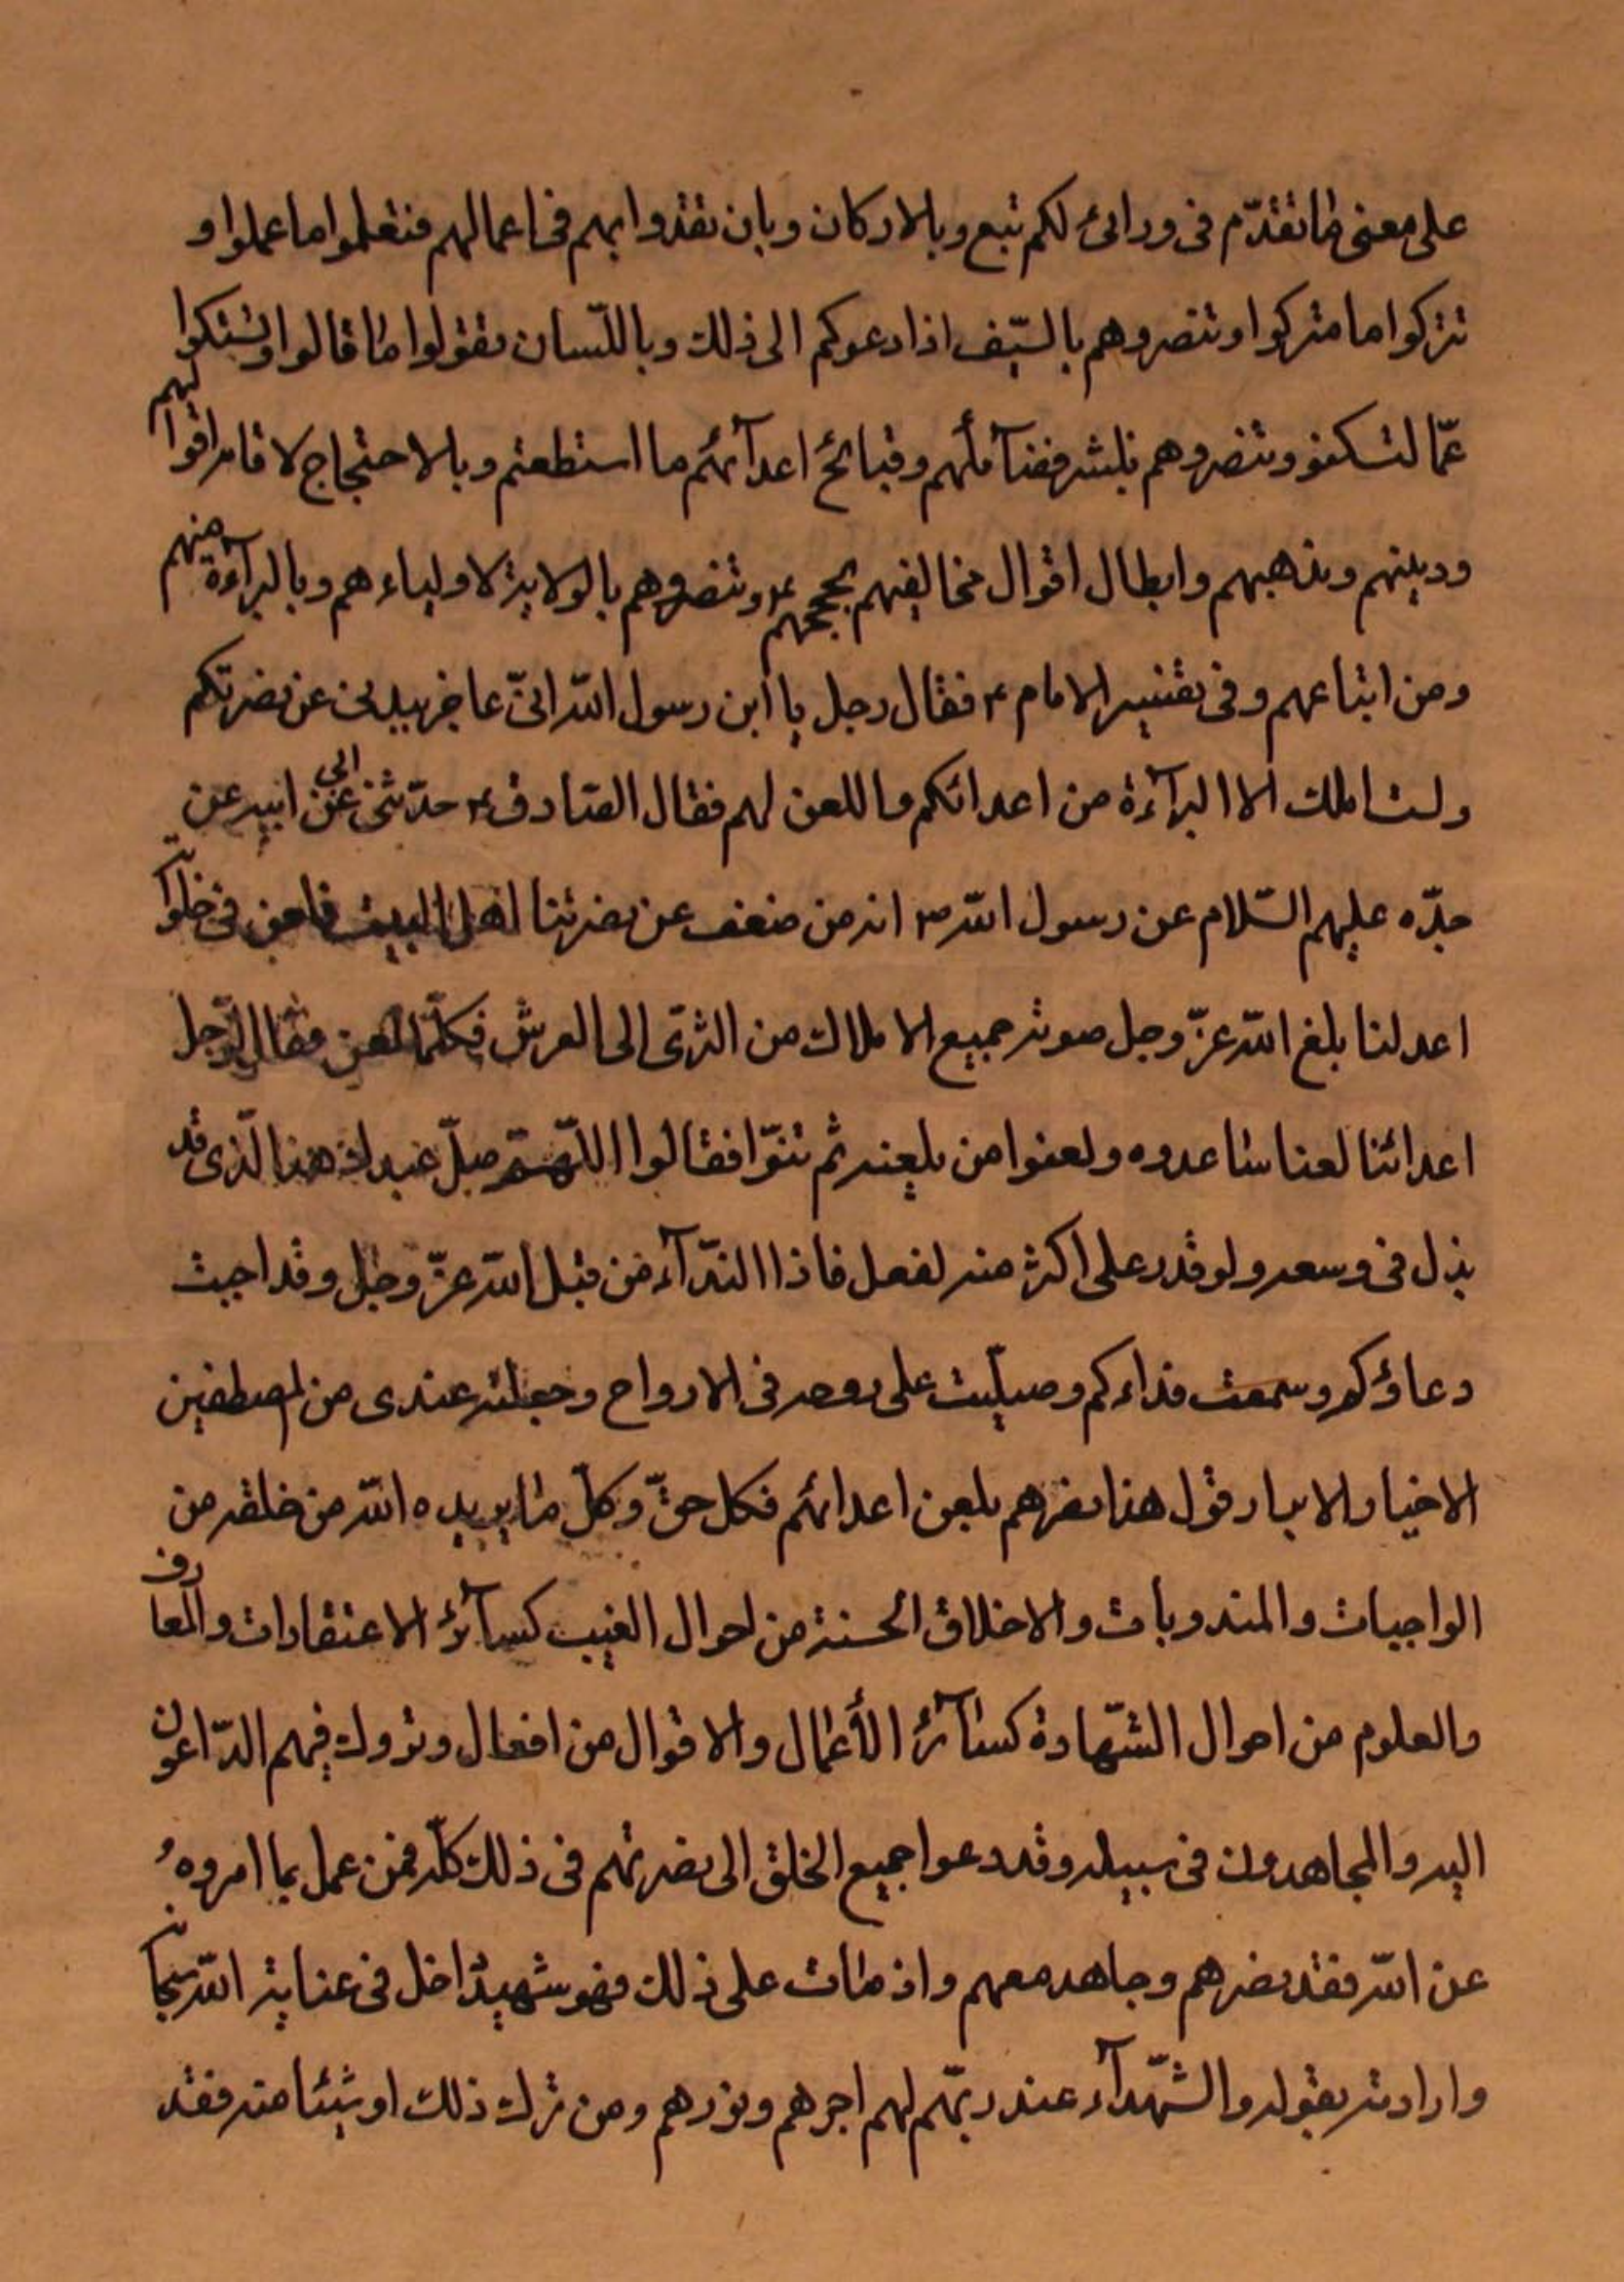 على معنى ما تقدّم فى ورائ لكم تبع وبالاركان وبان تقذوا بهم فى اعمالهم فتعلموا ما عملوا و
تتركوا ما متركوا وتنصروهم بالسّيف اذا دعوكم الى ذلك وباللّسان تقولوا ما قالوا وتسكتوا
عمّا لتسكتو وتنصروهم بنشر فضآئلهم وقبائح اعدآئهم ما استطعتم وبالاحتجاج لاقامر اقوالهم
ودينهم ومذهبهم وابطال اقوال مخالفيهم بحججهم ع وتنصروهم بالولاية لاولياءهم وبالبرآءة منهم
ومن اتباعهم وفى تفسير الامام ع فقال رجل يا ابن رسول الله انىّ عاجز ببدنى عن نصرتكم
ولست املك الا البرآءة من اعدائكم وا اللعن لهم فقال الصّادق ع حدّثنى ابى عن ابيه عن
جدّه عليهم السّلام عن رسول الله ص انه من ضعف عن نصرتنا اهل البيت فلعن فى خلواته
اعدلنا بلغ الله عزّ وجل صوته جميع الاملاك من الثرى الى العرش فكلّما لعن فقال الرّجل
اعدائنا لعنا ساعدوه ولعنوا من يلعنه ثم ثنوّا فقالوا اللّهمّ صلّ عبدك هذا الّذى قد
بذل فى وسعه ولو قدر على اكثر منه لفعل فاذا النّدآء من قبل الله عزّ وجل وقد اجبت
دعاؤكم وسمعت نداءكم وصلّيت على روحه فى الارواح وجعلته عندى من المصطفين
الاخيار الابرار قول هذا نصرهم بلعن اعدائهم فكل حقّ وكلّ ما يريده الله من خلقه من
الواجبات والمندوبات والاخلاق الحسنة من احوال الغيب كسآئر الاعتقادات والمعارف
والعلوم من احوال الشّهادة كسآئر الأعمال والاقوال من افعال وتروك فيهم الدّاعون
اليه والمجاهدون فى سبيله وقد دعوا جميع الخلق الى نصرتهم فى ذلك كلّه فمن عمل بما امروه
عن الله فقد نصرهم وجاهد معهم واذ مات على ذلك فهو شهيد داخل فى عناية الله سبحانه
وارادته بقوله والشّهدآء عند ربّهم لهم اجرهم ونورهم ومن ترك ذلك او شيئا منه فقد